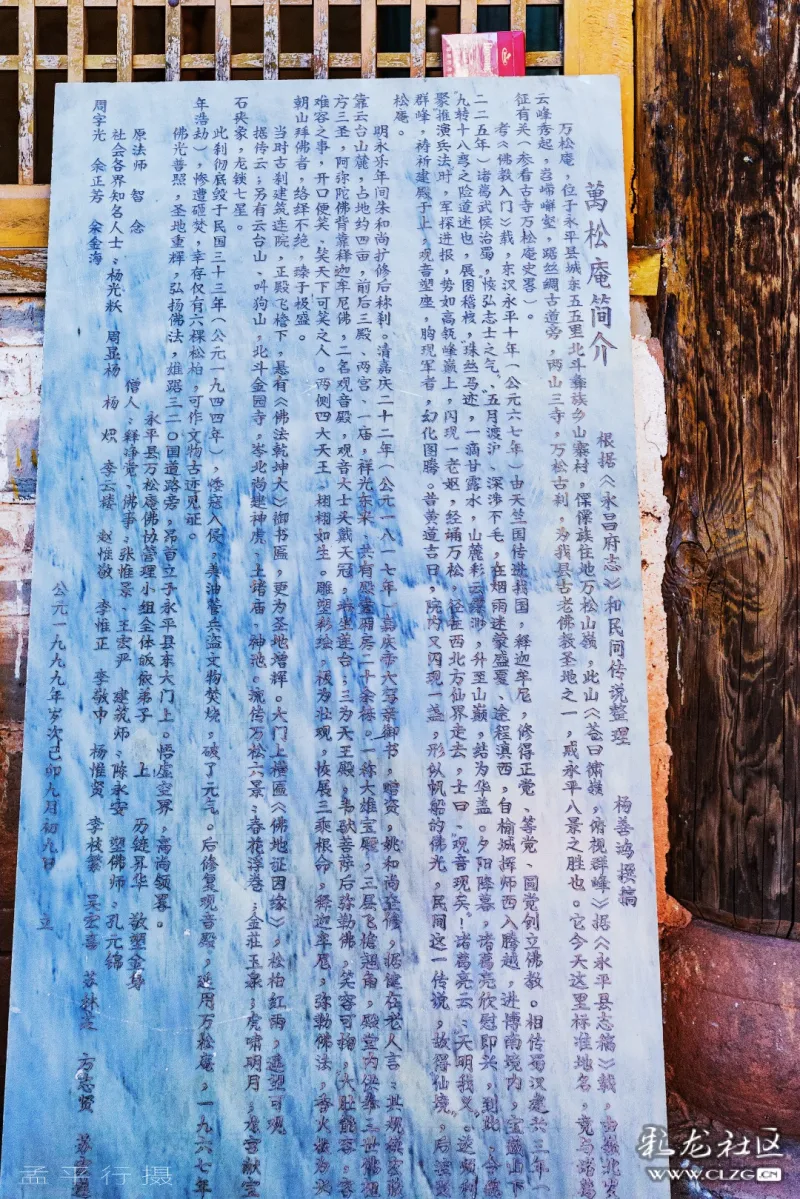 萬松庵简介
根据《永昌府志》和民间传说整理
杨善鸿撰搞
万松庵，位于永平县城东五五里北斗彝族乡山寨村，倮倮族住地万松山嶺，此山《苍曰镛嶺，俯视群峰》据《永平县志稿》載，
云峰秀起，岩崤嶰壑，踞丝绸古道旁，两山三寺，万松古刹，为我县古老佛教圣地之一，咸永平八景之胜也。它今天这里标准地名，竟与
征有关（参看古寺万松庵史畧）。
考《佛教入门》载，东汉永平十年（公元六七年）由天竺国传进我国，释迦牟尼，修得正觉、等觉、圆觉创立佛教。相传蜀汉建兴三年（
二二五年）诸葛武侯治蜀，恢弘志士之气、五月渡沪、深涉不毛，在烟雨迷蒙盛夏、途程滇西，自榆城挥师西入腾越，进博南境内，宝藏山下
九转十八弯之险道迷也，展图稽栈，珠丝马迹，一滴甘露水，山麓彩云缭渺，升至山巅，结为华盖。夕阳降暮，诸葛亮欣慰即兴，到此，令
聚推演兵法时，军探进报，势如高瓴峰巅上，闪现一老妪，经诵万松，径在西北方仙界走去，士曰、观音现矣！诸葛亮云：天明我义。
群峰，祷祈建殿于上，观音塑座，胸现军者，幻化图腾。昔黄道吉日，院内又闪现一盏，形似帆船的佛光，民间这一传说，故得仙境。后
松庵。
明永乐年间朱和尚扩修后称刹。清嘉庆二十二年（公元一八一七年）嘉庆帝六写亲御书，赠资，姚和尚
靠云台山麓，占地约四亩，前后三殿、两宫、一庙，祥光东来、共有殿堂廂房二十余栋。一称大雄宝殿，三层飞檐翅角，殿堂内供奉三世佛祖
方三圣，阿弥陀佛背靠释迦牟尼佛，二名观音殿，观音大士头戴天冠，端坐莲台；三为天王殿，韦驮菩萨后弥勒佛，笑容可掬，大肚能容，容
难容之事，开口便笑、笑天下可笑之人。两侧四大天王、栩栩如生。雕塑彩绘，极为壮观，恢展三乘根命，释迦牟尼，弥勒佛法，香火极为兴
朝山拜佛者，络绎不绝，臻于极盛。
当时古刹建筑连院，正殿飞檐下，悬有《佛法乾坤大》御书匾，更为圣地增辉。大门上横匾《佛地证因缘》，松柏红两，遥望可观
据传云；另有云台山、叫狗山，北斗金园寺，岑北尚建神虎、土堵庙、神池。流传万松六景：春花浮卷；金壮玉泉；虎啸明月；水宫献宝
石夹象，龙锁七星。
此刹彻底毁于民国三十三年（公元一九四四年），倭寇入侵，美油管兵盗文物焚烧，破了元气。后修复观音殿，延用万松庵，一九六七年
年浩劫），惨遭砸焚，幸存仅有六棵松柏，可作文物古迹见证。
佛光普照，圣地重辉，弘扬佛法，雄踞三二〇国道路旁，昂首立于永平县东大门上。悟虚空界，高尚领畧。
永平县万松庵佛协管理小组全体皈依弟子 上
原法师 智念
僧人：释净觉、佛事：张惟景、王宏严 建筑师：陈永安 塑佛师：孔元锦
历链昇华 敬塑金身
社会各界知名人士：杨光秋 周显杨 杨炽 李云楼 赵惟敬 李惟正 李敬中 杨惟贤 李枝繁 吴宏喜 苏林芝 方志贤 苏
周宇光 余正芳 余金海
公元一九九九年岁次己卯九月初九日 立
孟平行摄
彩龙社区
WWW.CLZG.CN